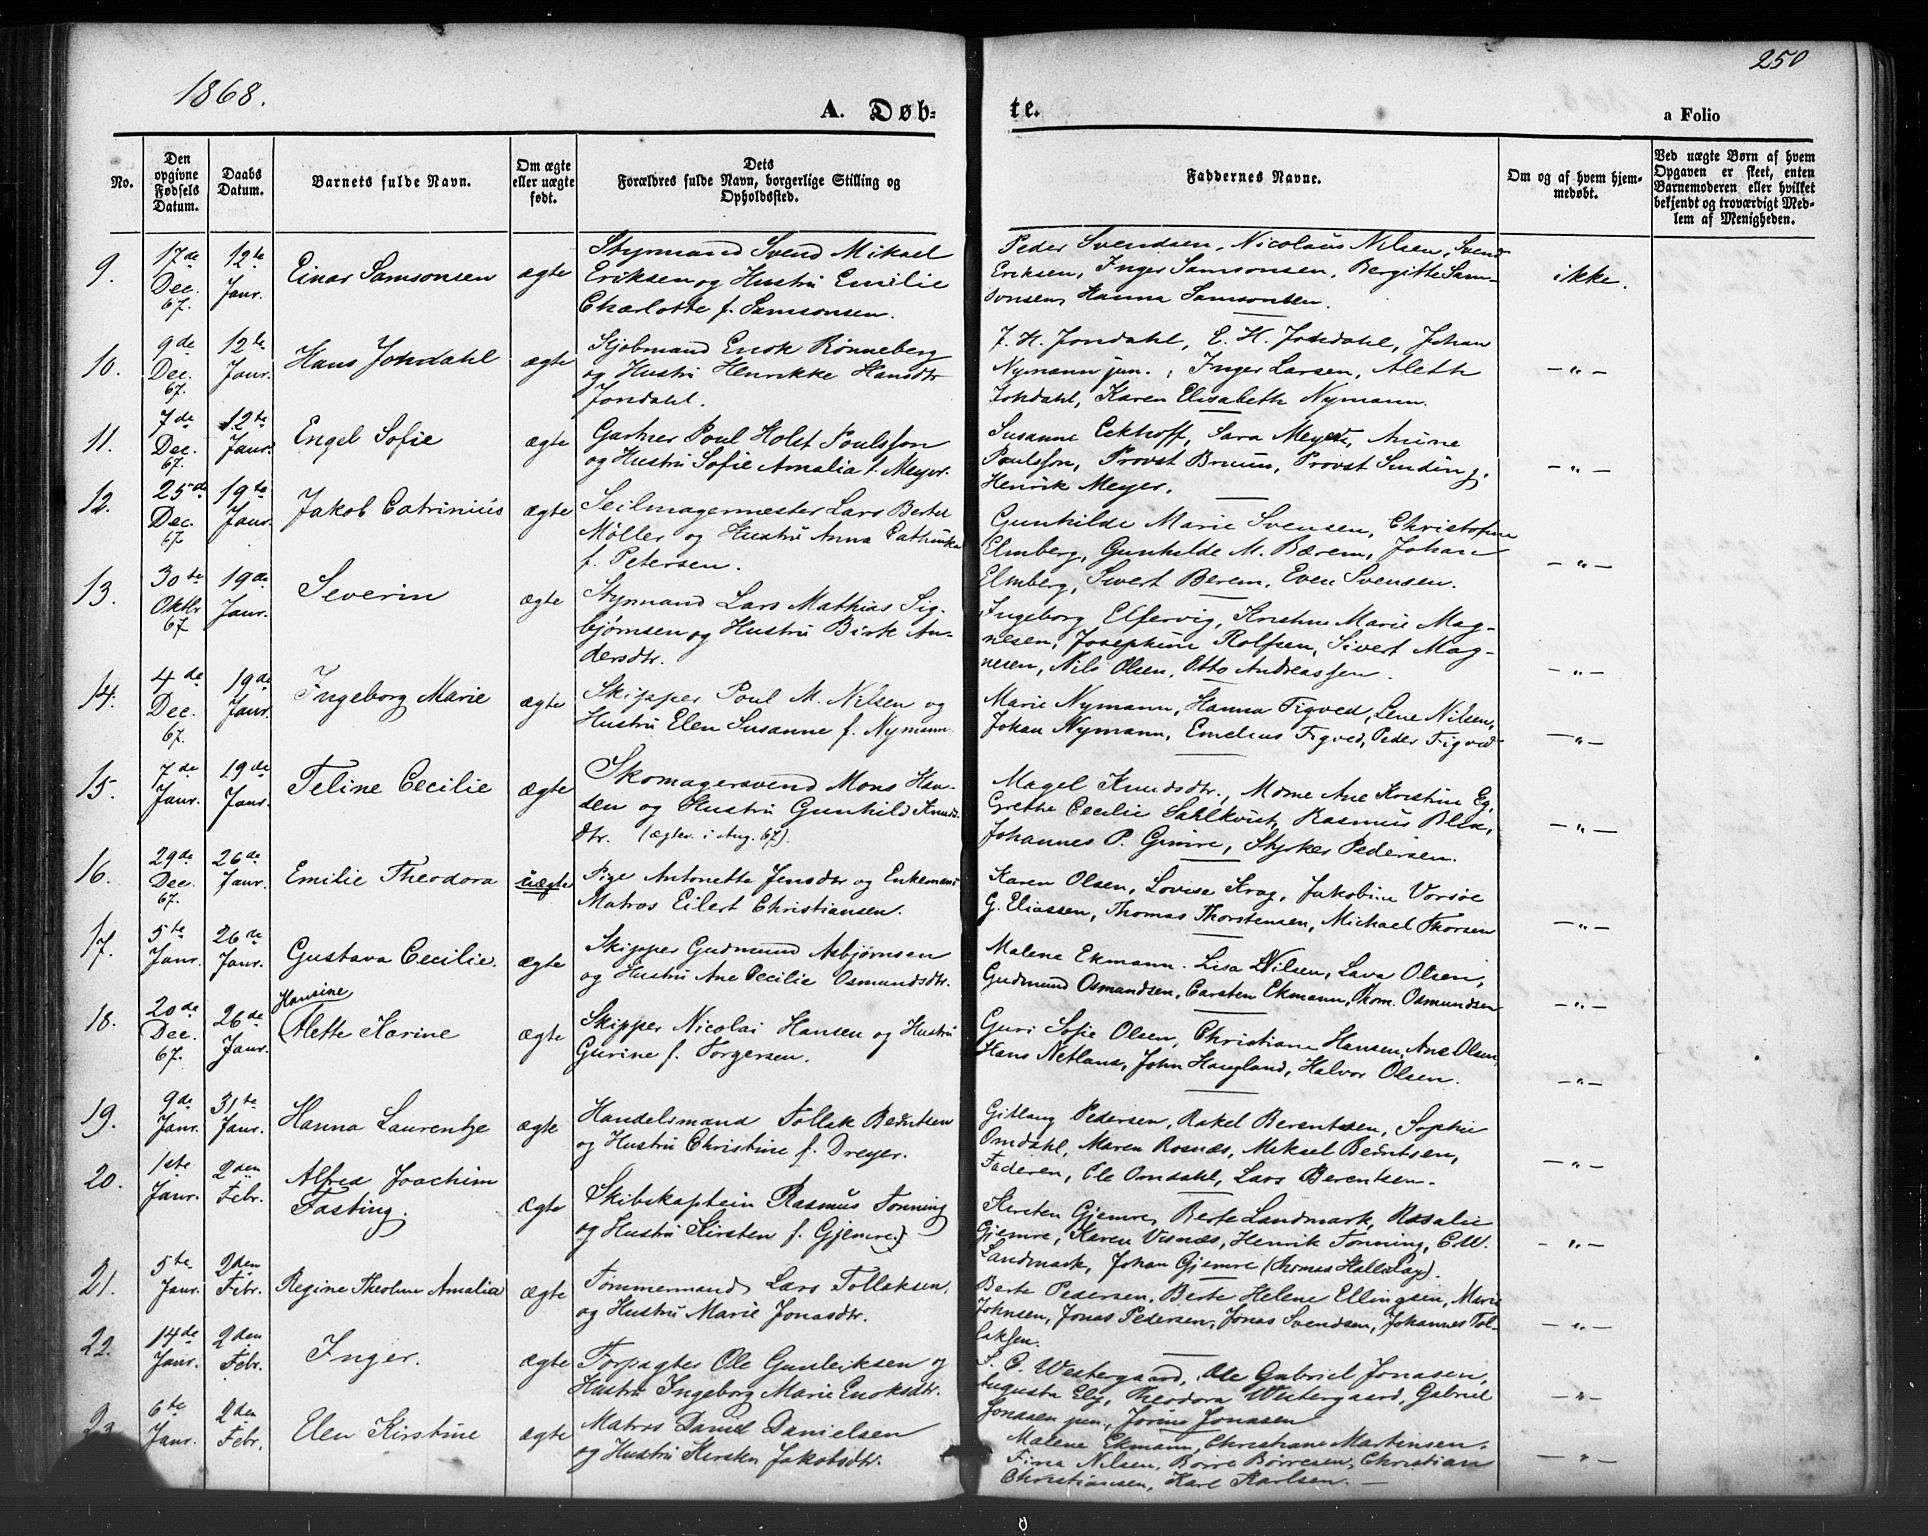 1868.
250
A. Døb-
te.
a Folio
No.
Den opgivne Fødsels Datum.
Daabs Datum.
Barnets fulde Navn.
Om ægte eller uægte født.
Dets Forældres fulde Navn, borgerlige Stilling og Opholdssted.
Faddernes Navne.
Om og af hvem hjemmedøbt.
Ved uægte Børn af hvem Opgaven er skeet, enten Barnemoderen eller hvilket bekjendt og troværdigt Medlem af Menigheden.
9.
17de Dec. 67.
12te Janr.
Einar Samsonsen
ægte
Styrmand Svend Mikael
Eriksen og Hustru Emilie
Charlotte f. Samsonsen.
Peder Svendsen, Nicolaus Nilsen, Svend
Eriksen, Inger Samsonsen, Bergitte Sam-
sonsen, Hanna Samsonsen.
ikke.
10.
9de Dec. 67.
12te Janr.
Hans Jondahl
ægte
Kjøbmand Enok Rønneberg
og Hustru Henrikke Hansdtr
Jondahl.
J. H. Jondahl, E. H. Jondahl, Johan
Nymann jun., Inger Larsen, Aleth
Jondahl, Karen Elisabeth Nymann.
— " —
11.
7de Dec. 67.
12te Janr.
Engel Sofie
ægte
Gartner Poul Holst Poulsson
og Hustru Sofie Amalia f. Meyer.
Susanne Eckhoff, Sara Meyer, Anine
Poulsson, Provst Bruun, Provst Sinding,
Henrik Meyer.
— " —
12.
25de Dec. 67
19te Janr.
Jakob Catrinius
ægte
Seilmagermester Lars Bertel
Møller og Hustru Anna Cathinka
f. Petersen.
Gunhilde Marie Svensen, Christofine
Elmberg, Gunhilde M. Bærem, Johan
Elmberg, Sivert Berem, Even Svensen.
— " —
13.
30te Oktbr 67
19de Janr.
Severin
ægte
Styrmand Lars Mathias Sig-
bjørnsen og Hustru Birte An-
dersdtr.
Ingeborg Elfervig, Kristine Marie Mag-
nesen, Josephine Rolfsen, Sivert Mag-
nesen, Nils Olsen, Otto Andreassen.
— " —
14.
4de Dec. 67.
19de Janr.
Ingeborg Marie
ægte
Skipper Poul M. Nilsen og
Hustru Elen Susanne f. Nymann.
Marie Nymann, Hanna Figved, Lene Nilsen,
Johan Nymann, Emelius Figved, Peder Figved
— " —
15.
7de Janr.
19de Janr.
Feline Cecilie
ægte
Skomagersvend Mons Han-
sen og Hustru Gunhild Knuds-
dtr. (ægtev. i Aug. 67).
Magel Knudsdtr., Mome Ane Kirstine Eg,
Grethe Cecilie Sahlkvist, Rasmus Blix,
Johannes P. Gimre, Styrker Pedersen.
— " —
16.
29de Dec. 67.
26de Janr.
Emilie Theodora
uægte
Pige Antonette Jensdtr og Enkemand
Matros Eilert Christiansen.
Karen Olsen, Lovise Krag, Jakobine Vorsøe
G. Eliassen, Thomas Thorstensen, Michael Thorsen
— " —
17.
5te Janr.
26de Janr.
Gustava Cecilie.
ægte
Skipper Gudmund Asbjørnsen
og Hustru Ane Cecilie Osmundsdtr.
Malene Ekmann. Lisa Nilsen, Lava Olsen,
Gudmund Osmandsen, Carsten Ekmann, Thom. Osmundsen
— " —
18.
20de Dec. 67.
26de Janr.
Hansine
Alette Karine
ægte
Skipper Nicolai Hansen og Hustru
Gurine f. Torgersen.
Guri Sofie Olsen, Christiane Hansen, Ane Olsen,
Hans Netland, John Haugland, Halvor Olsen.
— " —
19.
9de Janr.
31te Janr.
Hanna Laurentze
ægte
Handelsmand Tollak Berntsen
og Hustru Christine f. Dreyer.
Gitlaug Pedersen, Rakel Berentsen, Sophie
Omdahl, Maren Rosnæs, Miksel Berntsen,
Faderen, Ole Omdahl, Lars Berentsen.
— " —
20.
1ste Janr.
2den Febr.
Alfred Joachim
Fasting.
ægte
Skibskaptein Rasmus Tonning
og Hustru Kirsten f. Gjemre.)
Kirsten Gjemre, Berte Landmark, Rosalie
Gjemre, Karen Visnæs, Henrik Tonning, C. W.
Landmark, Johan Gjemre (Thomas Halleday).
- " —
21.
5te Janr.
2den Febr.
Regine Theoline Amalia
ægte
Tømmermand Lars Tollaksen,
og Hustru Marie Jonasdtr.
Berte Pedersen, Berte Helene Ellingsen, Marie
Johnsen, Jonas Pedersen, Jonas Svendsen, Johannes Tol-
laksen.
— " —
22.
14de Janr.
2den Febr.
Inger.
ægte
Forpagter Ole Gunleiksen og
Hustru Ingeborg Marie Enoksdtr.
S. C. Westergaard, Ole Gabriel Jonasen,
Augusta Ely, Theodora Westergaard, Gabriel
Jonassen jun., Jørine Jonassen
— " —
23.
6te Janr.
2den Febr.
Elen Kirstine
ægte
Matros David Danielsen
og Hustru Kirsten Jakobsdtr.
Malene Ekmann, Christiane Martinsen,
Fina Nilsen, Børre Børresen, Christian
Christiansen, Karl Karlsen.
— " —